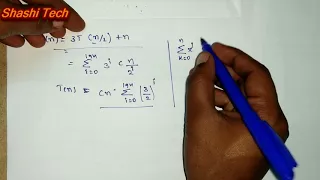 Shashi Tech
(n) = 3T (n/2) + n
= Σ_{i=0}^{lgn} 3^i c n/2^i
T(n) = cn · Σ_{i=0}^{lgn} (3/2)^i
Σ_{k=0}^{n} x^i